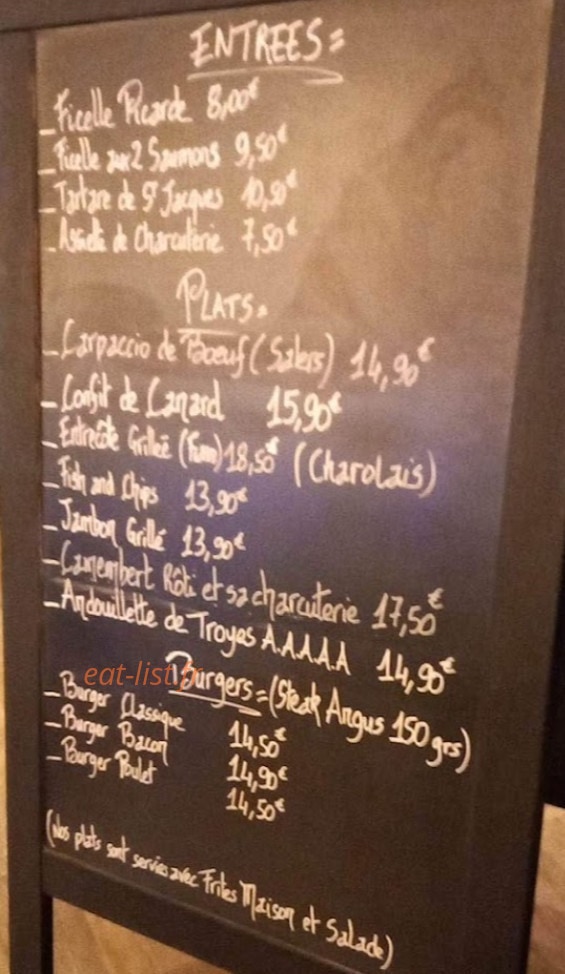 ENTREES =
_ Ficelle Picarde 8,00€
_ Ficelle aux 2 Saumons 9,50€
_ Tartare de St Jacques 10,50€
_ Assiette de Charcuterie 7,50€
PLATS =
_ Carpaccio de Boeuf (Salers) 14,90€
_ Confit de Canard 15,90€
_ Entrecôte Grillée 18,50€ (Charolais)
_ Fish and Chips 13,90€
_ Jambon Grillé 13,90€
_ Camembert Rôti et sa charcuterie 17,50€
_ Andouillette de Troyes A.A.A.A.A 14,90€
eat-list.fr
Burgers = (Steak Angus 150 grs)
_ Burger Classique 14,50€
_ Burger Bacon 14,90€
_ Burger Poulet 14,50€
(Nos plats sont servies avec Frites Maison et Salade)